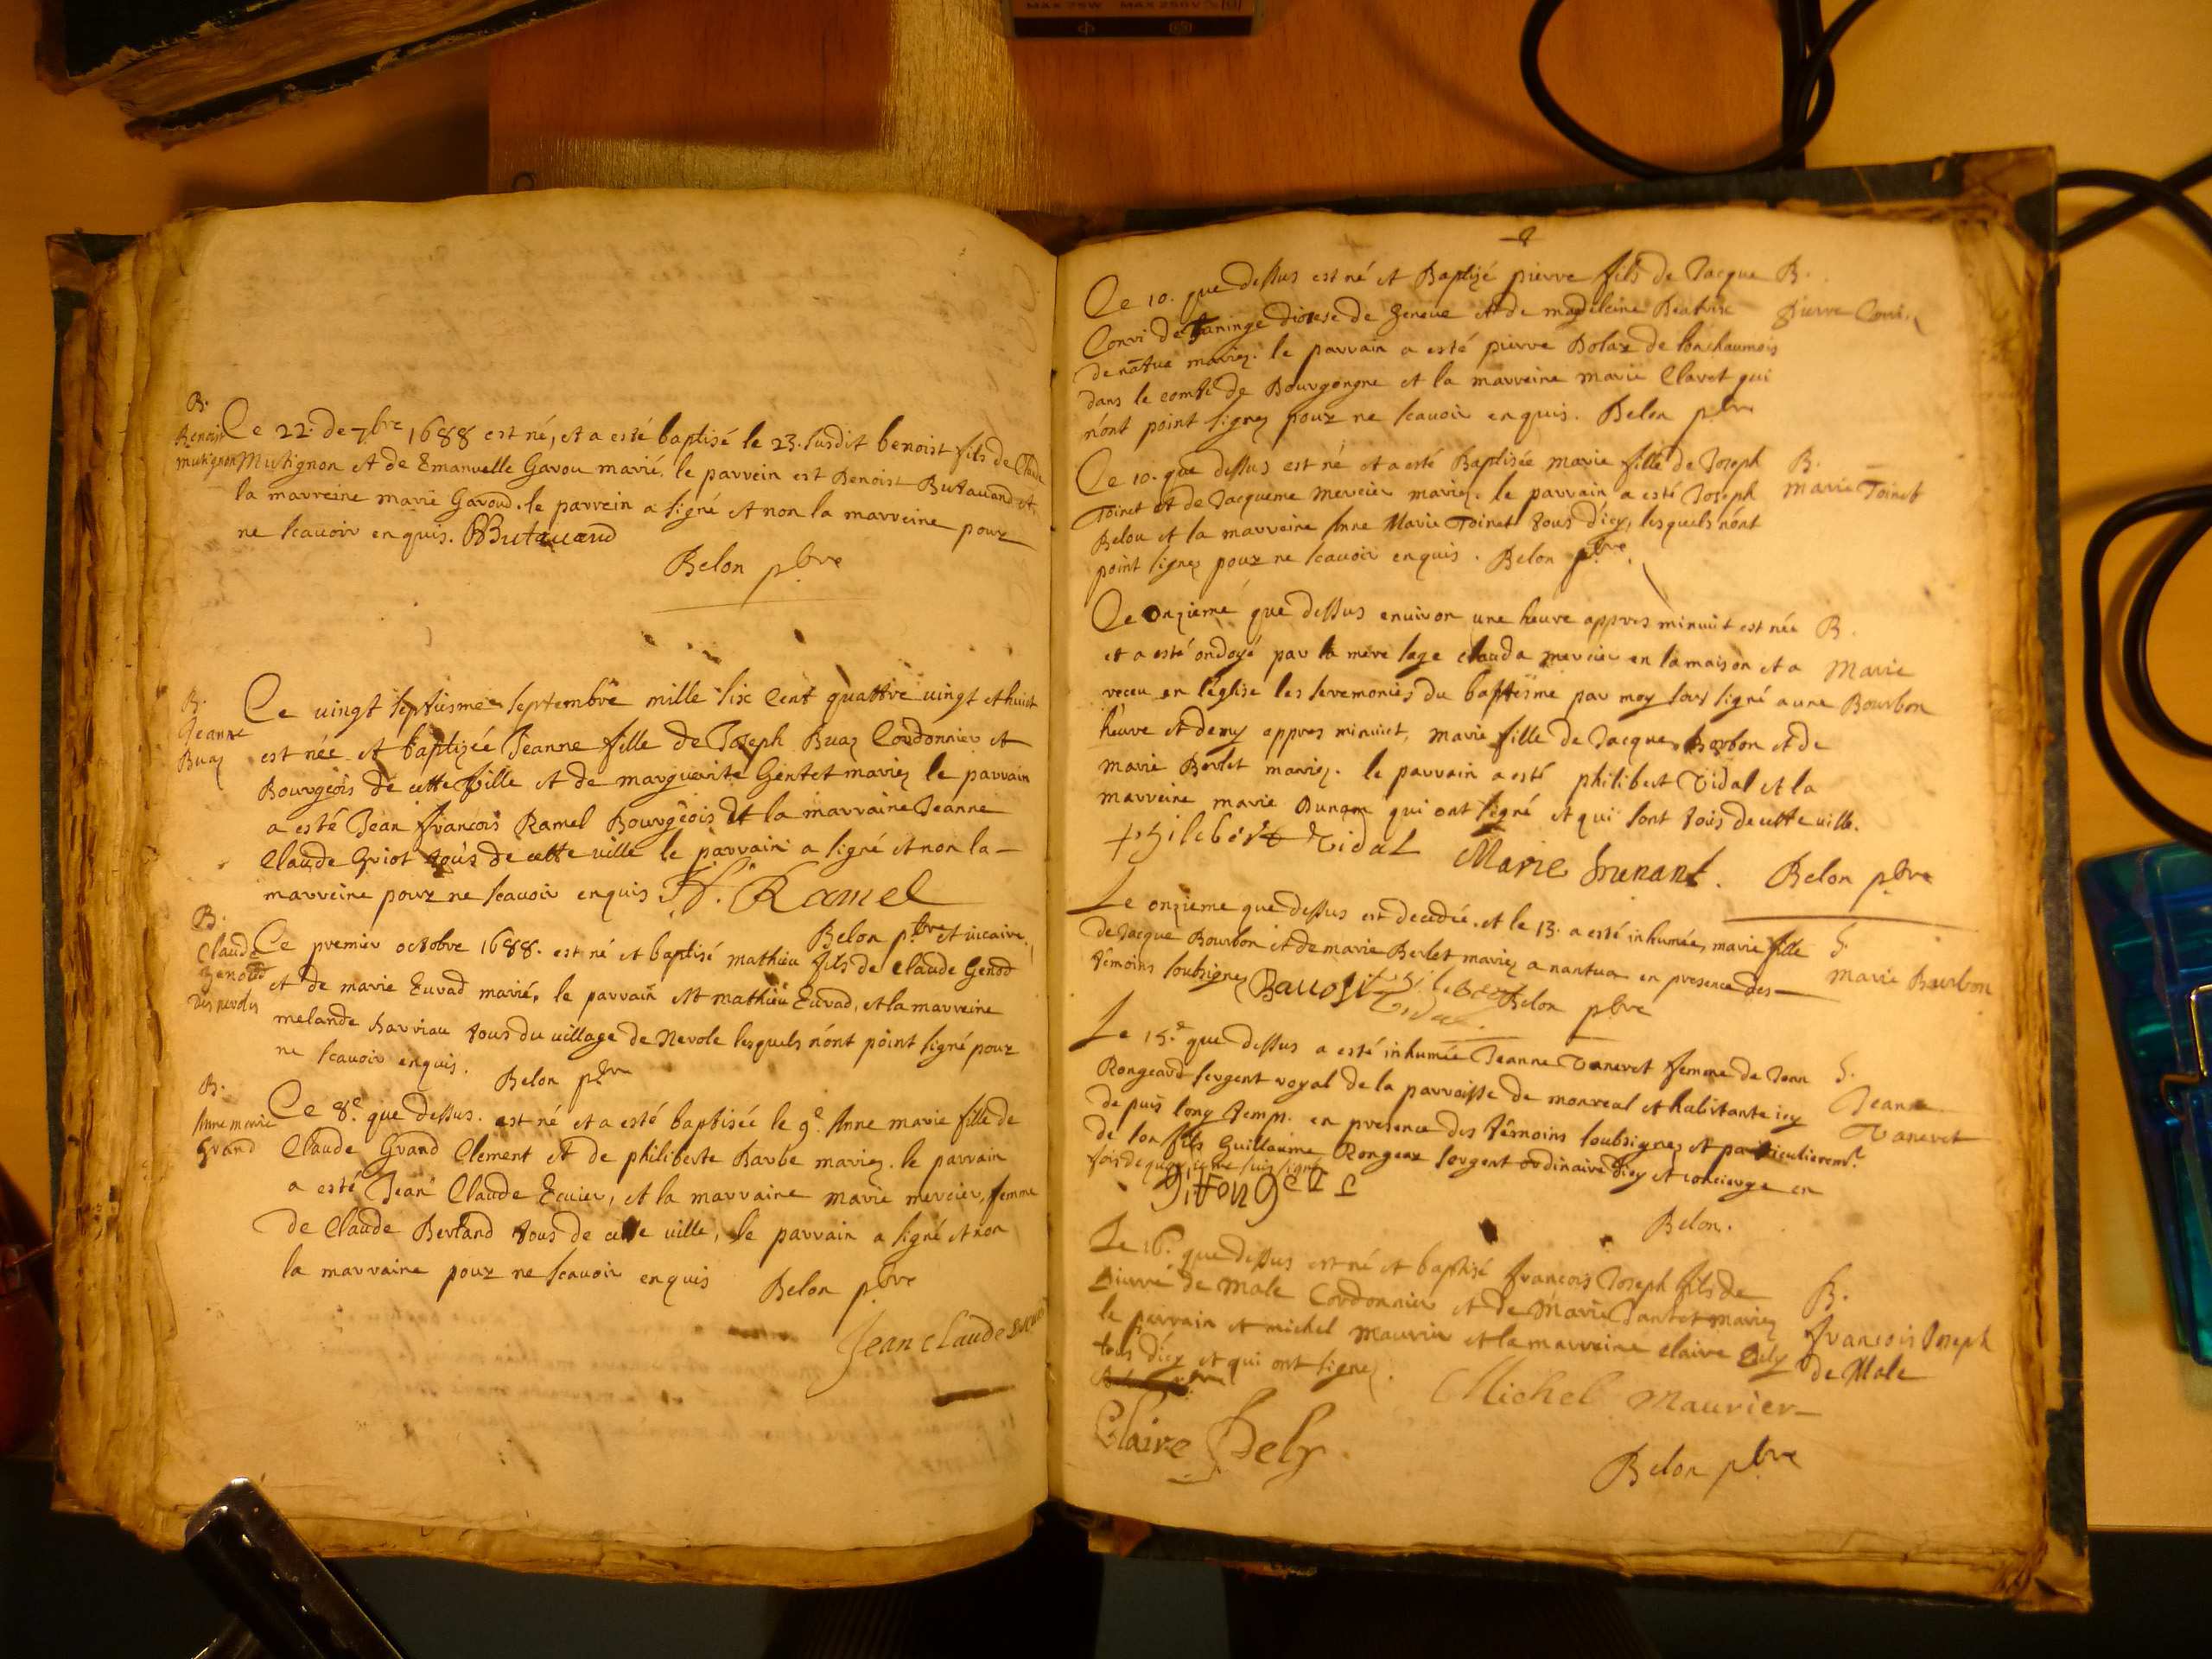 MAX 75W MAX 250V
B.
Benoist
Mutignon
Ce 22. de 7bre 1688 est né, et a esté baptisé le 23. susdit benoist fils de Claude
Mutignon et de Emanuelle Gavou marié. le parrein est Benoist Butauand et
la marreine marie Gavoud. le parrein a signé et non la marreine pour
ne scauoir enquis. BButauand
Belon pbre
B.
Jeanne
Buaz
Ce uingt septiesme septembre mille six Cent quattre uingt et huit
est née et baptizée Jeanne fille de Joseph Buaz Cordonnier et
Bourgeois de cette ville et de marguerite Gentet mariez le parrain
a esté Jean francois Ramel Bourgeois et la marraine Jeanne
Claude Griot tous de cette ville le parrain a signé et non la
marreine pour ne scauoir enquis Jf. Ramel
Belon pbre et uicaire
B.
Claude
Genoud
Des nerolis
Ce premier octobre 1688. est né et baptisé mathieu fils de Claude Genod
et de marie Euvad marié, le parrain est mathieu Euvad, et la marreine
melande Barriau tous du uillage de Nerole lesquels n'ont point signé pour
ne scauoir enquis. Belon pbre
B.
Anne marie
Grand
Ce 8e. que dessus. est né et a esté baptisée le 9e. Anne marie fille de
Claude Grand Clement et de philiberte Barbe mariez. le parrain
a esté Jean Claude Ecuier, et la marraine marie mercier, femme
de Claude Bertand tous de cette ville, le parrain a signé et non
la marraine pour ne scauoir enquis Belon pbre
Jean Claude
Ce 10. que dessus est né et Baptizé pierre fils de Jacque
Convi de Taninge diocese de Geneue et de magdeleine Beatrix
de nãtua mariez. le parrain a esté pierre Bolaz de lonchaumois
dans le comté de Bourgongne et la marreine marie Claret qui
n'ont point signez pour ne scauoir enquis. Belon pbre
B.
Pierre Convi.
Ce 10. que dessus est né et a esté Baptisée marie fille de Joseph
Toinet et de Jacqueme mercier mariez. le parrain a esté Joseph
Belou et la marreine Anne Marie Toinet tous d'icy, lesquels n'ont
point signez pour ne scauoir enquis. Belon pbre.
B.
Marie Toinet
Ce onzieme que dessus enuiron une heure appres minuit est née
et a esté ondoyé par la mere sage clauda mercier en la maison et a
receu en l'église les seremonies du baptesme par moy sous signé a une
heure et demy appres minuict, marie fille de Jacque Borbon et de
marie Berlet mariez. le parrain a esté philibert Vidal et la
marreine marie Dunan qui ont signé et qui sont tous de cette uille.
philebert Vidal Marie Dunant. Belon pbre
B.
Marie
Bourbon
Le onzieme que dessus est decedée. et le 13. a esté inhumée, marie fille
de Jacque Bourbon et de marie Berlet mariez a nantua en presence des
témoins soubsignez Belon pbre
S.
Marie Bourbon
Le 15e que dessus a esté inhumée Jeanne Vaneret femme de Jean
Rongeard sergent royal de la parroisse de monreal et habitante icy
depuis long temp. en presence des témoins soubsignez et particulieremt.
de son fils Guillaume Rongear sergent ordinaire d'icy et concierge en
Belon.
S.
Jeanne
Vaneret
Le 16. que dessus est né et baptisé francois Joseph fils de
Pierre de Male Cordonnier et de Marie Jantet mariez
le parrain et michel Maurier et la marreine claire Dely
tous d'icy et qui ont signez.
B.
francois Joseph
de Male
Michel Maurier
Claire Dely.
Belon pbre